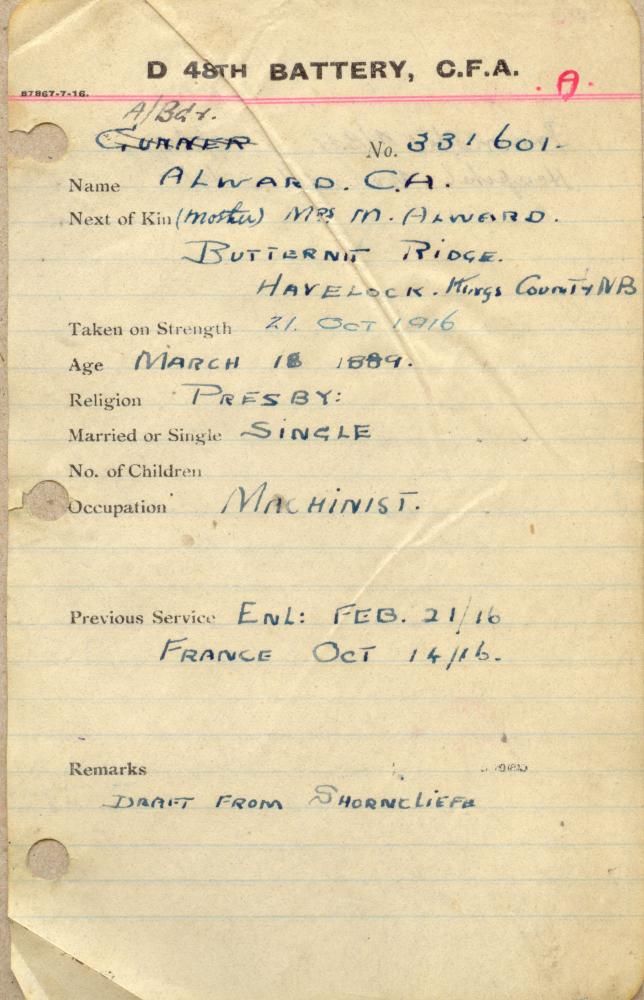 D 48TH BATTERY, C.F.A.
A.
87867-7-16.
A/Bdr.
GUNNER No. 331601-
Name ALWARD. C.H.
Next of Kin (Mother) MRS M. ALWARD.
BUTTERNUT RIDGE.
HAVELOCK. Kings COUNTY NB
Taken on Strength 21. OCT 1916
Age MARCH 18 1889.
Religion PRESBY:
Married or Single SINGLE
No. of Children
Occupation MACHINIST.
Previous Service ENL: FEB. 21/16
FRANCE OCT 14/16.
Remarks
DRAFT FROM SHORNCLIEFE